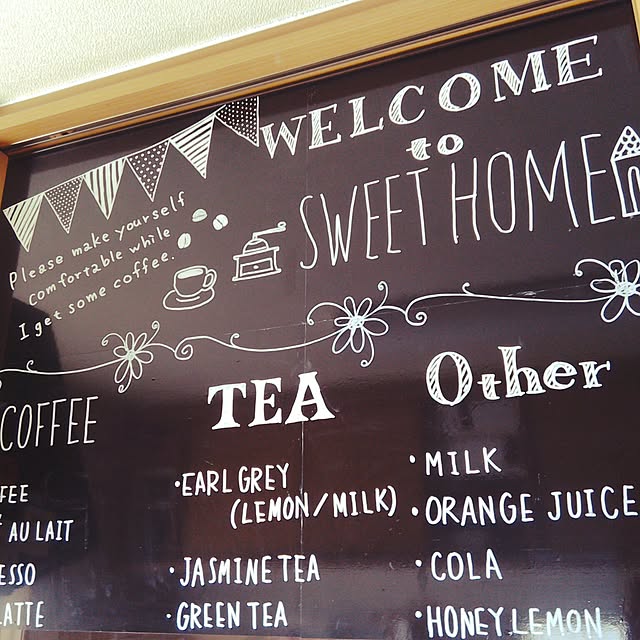 WELCOME
to
SWEET HOME
Please make yourself
comfortable while
I get some coffee.
COFFEE
AU LAIT
TEA
• EARL GREY
(LEMON/MILK)
• JASMINE TEA
• GREEN TEA
Other
• MILK
• ORANGE JUICE
• COLA
• HONEY LEMON